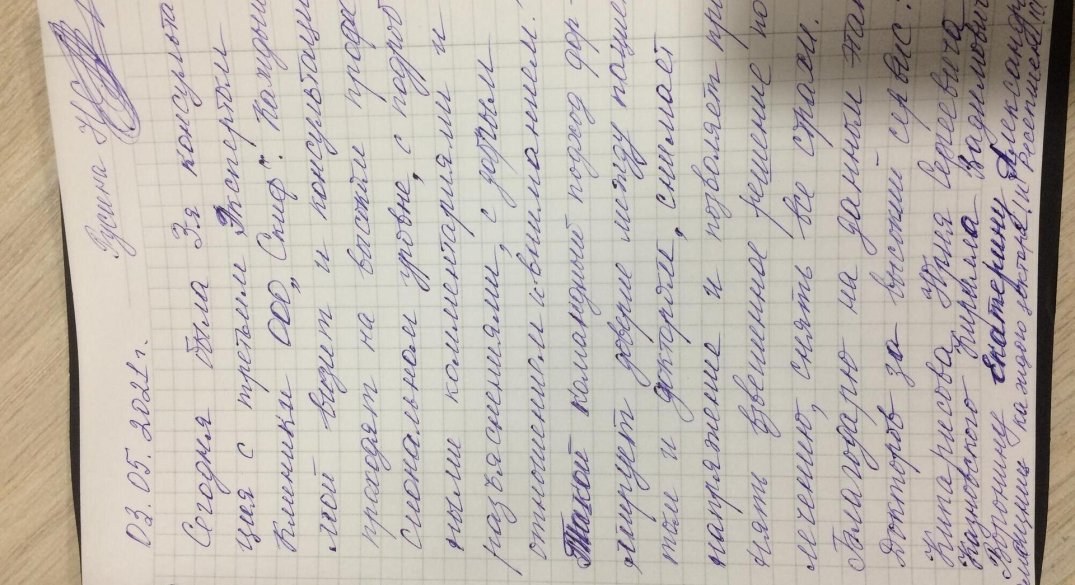 03.05.2022г. Русина Н
Сегодня была 3я консульта
ция с третьим Экспертом
Клиники ООО „Скиф". Каждый
мой визит и консультаци
проходят на высшем проф
сиональном уровне, с подроб
ными комментариями и
разъяснениями, с добрым
отношением и вниманием.
Такой командный подход фор-
мирует доверие между пацие
том и доктором, снимает
напряжение и позволяет при
нять взвешенное решение по
лечению, снять все страхи.
благодарю на данным этап
Докторов за высокий сервис:
Кипарисова Юрия Сергеевича
Казновского Кирилла Вадимович
Воронину Екатерину Александр